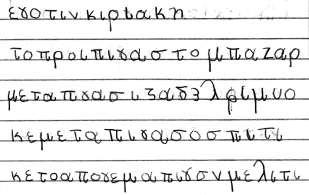 εγοτιν κιριακη
το προι πιγα στο μπαζαρ
μετα πιγα σι ξαδελφι μυο
κε μετα πιγα σο σπιτι
κε το απογεμα πιγα συν μελιτι